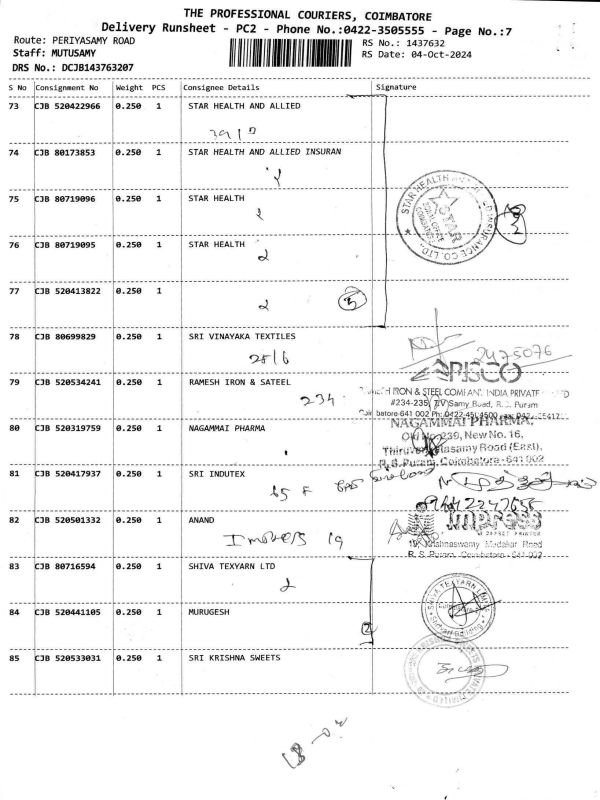 THE PROFESSIONAL COURIERS, COIMBATORE
Delivery Runsheet - PC2 - Phone No.:0422-3505555 - Page No.:7
Route: PERIYASAMY ROAD
RS No.: 1437632
Staff: MUTUSAMY
RS Date: 04-Oct-2024
DRS No.: DCJB143763207
S No Consignment No Weight PCS Consignee Details Signature
73 CJB 520422966 0.250 1 STAR HEALTH AND ALLIED
74 CJB 80173853 0.250 1 STAR HEALTH AND ALLIED INSURAN
2
75 CJB 80719096 0.250 1 STAR HEALTH
2
STAR HEALTH INSURANCE CO. LTD.
STAR
76 CJB 80719095 0.250 1 STAR HEALTH
2
77 CJB 520413822 0.250 1
2 5
78 CJB 80699829 0.250 1 SRI VINAYAKA TEXTILES
25/6
2475076
79 CJB 520534241 0.250 1 RAMESH IRON & SATEEL
234
IRON & STEEL COMPANY INDIA PRIVATE
#234-235, T.V Samy Road, R.S. Puram
80 CJB 520319759 0.250 1 NAGAMMAI PHARMA
NAGAMMAI PHARMA,
Old No 239, New No. 16,
Road (East),
R.S. Puram, Coimbatore - 641 002
81 CJB 520417937 0.250 1 SRI INDUTEX
65 F
82 CJB 520501332 0.250 1 ANAND
Impress 19
impress
OFFSET PRINTER
19, Krishnaswamy Mudaliar Road
R. S. Puram, Coimbatore - 641 002
83 CJB 80716594 0.250 1 SHIVA TEXYARN LTD
2
SHIVA TEXYARN LIMITED
84 CJB 520441105 0.250 1 MURUGESH
2
85 CJB 520533031 0.250 1 SRI KRISHNA SWEETS